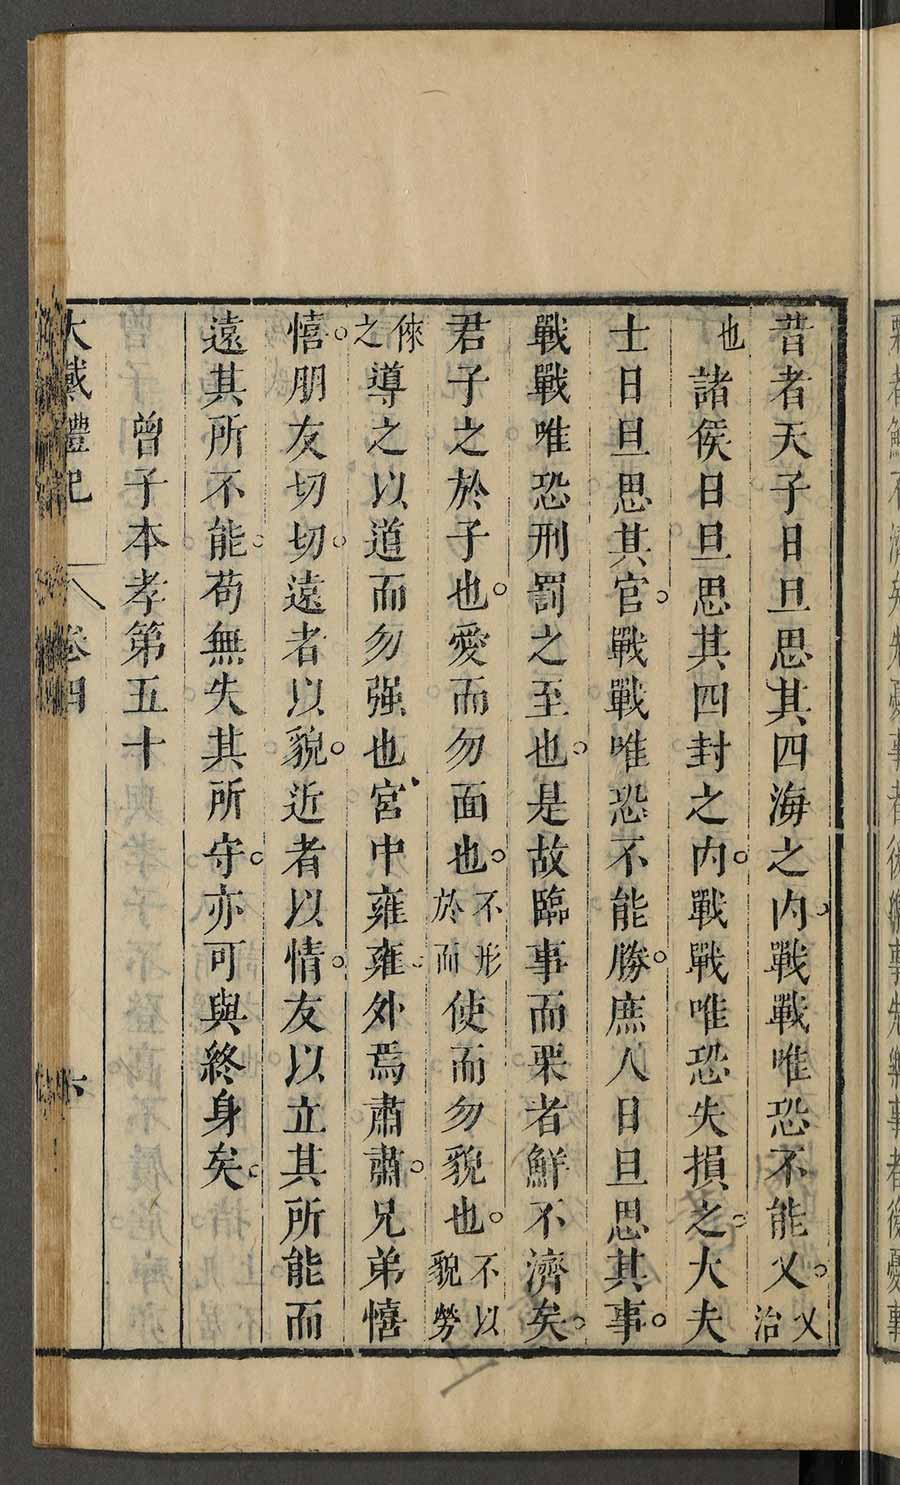 昔者天子日旦思其四海之内戰戰唯恐不能乂。乂治
也諸侯日旦思其四封之内。戰戰唯恐失損之。大夫
士日旦思其官。戰戰唯恐不能勝。庶人日旦思其事。
戰戰唯恐刑罰之至也。是故臨事而栗者鮮不濟矣。
君子之於子也。愛而勿面也。不形於而使而勿貌也。不以貌勞
倈之導之以道而勿强也宮中雍雍外焉肅肅。兄弟憘
憘。朋友切切。遠者以貌。近者以情。友以立其所能而
遠其所不能。苟無失其所守。亦可與終身矣。
曾子本孝第五十
大戴禮記 卷四 六